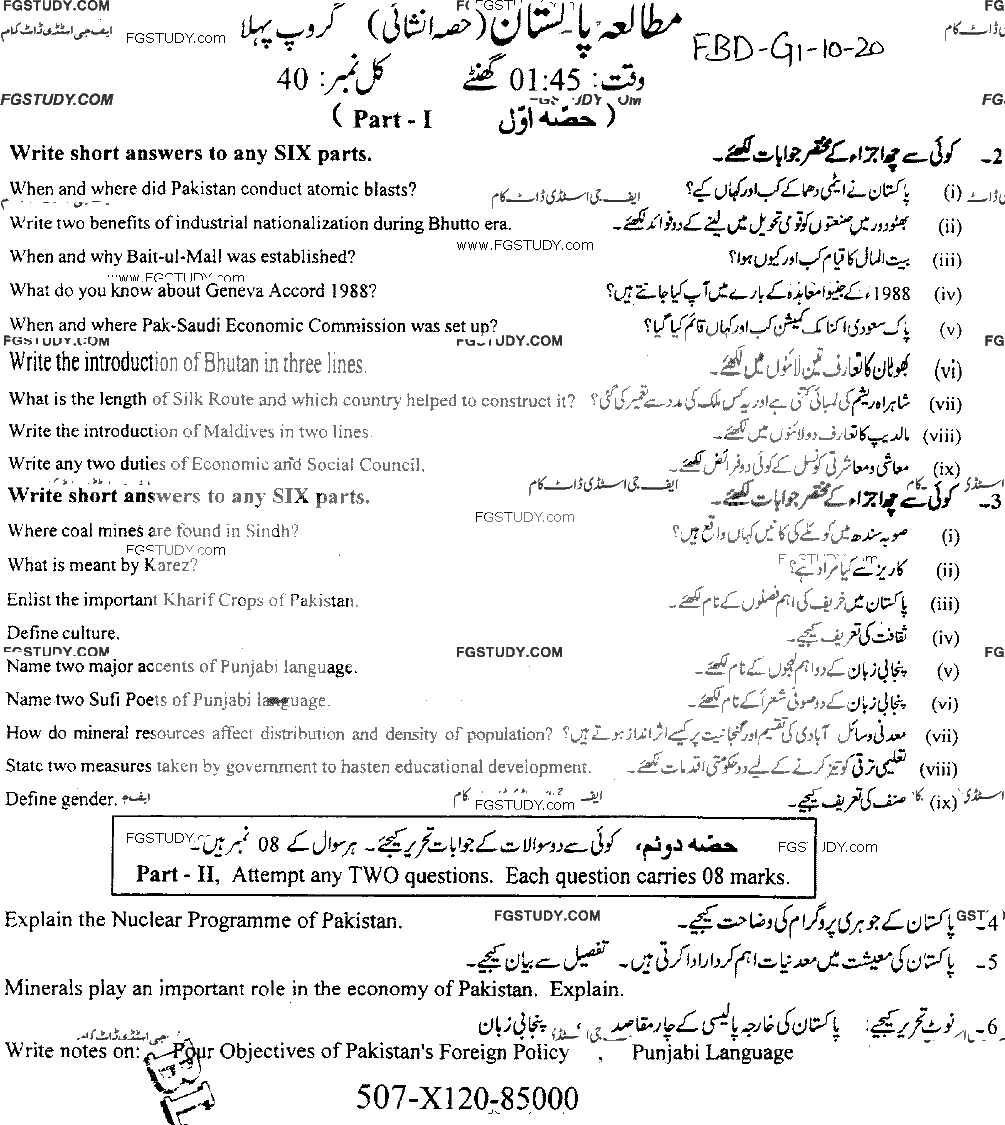 FGSTUDY.COM
مطالعہ پاکستان (حصہ انشائی) گروپ پہلا
FBD-G1-10-20
FGSTUDY.com
وقت: 01:45 گھنٹے کل نمبر: 40
FGSTUDY.COM
( Part - I حصّہ اوّل )
Write short answers to any SIX parts. 2- کوئی سے چھ اجزاء کے مختصر جوابات لکھئے۔
When and where did Pakistan conduct atomic blasts? (i) پاکستان نے ایٹمی دھماکے کب اور کہاں کیے؟
ایف جی اسٹڈی ڈاٹ کام
Write two benefits of industrial nationalization during Bhutto era. (ii) بھٹو دور میں صنعتوں کو قومی تحویل میں لینے کے دو فوائد لکھئے۔
www.FGSTUDY.com
When and why Bait-ul-Mall was established? (iii) بیت المال کا قیام کب اور کیوں ہوا؟
www.FGSTUDY.com
What do you know about Geneva Accord 1988? (iv) 1988ء کے جنیوا معاہدہ کے بارے میں آپ کیا جانتے ہیں؟
When and where Pak-Saudi Economic Commission was set up? (v) پاک سعودی اکنامک کمیشن کب اور کہاں قائم کیا گیا؟
FGSTUDY.COM FGSTUDY.COM FG
Write the introduction of Bhutan in three lines. (vi) بھوٹان کا تعارف تین لائنوں میں لکھئے۔
What is the length of Silk Route and which country helped to construct it? (vii) شاہراہ ریشم کی لمبائی کتنی ہے اور یہ کس ملک کی مدد سے تعمیر کی گئی؟
Write the introduction of Maldives in two lines. (viii) مالدیپ کا تعارف دو لائنوں میں لکھئے۔
Write any two duties of Economic and Social Council. (ix) معاشی و معاشرتی کونسل کے کوئی دو فرائض لکھئے۔
ایف جی اسٹڈی ڈاٹ کام
Write short answers to any SIX parts. 3- کوئی سے چھ اجزاء کے مختصر جوابات لکھئے۔
FGSTUDY.com
Where coal mines are found in Sindh? (i) صوبہ سندھ میں کوئلے کی کانیں کہاں واقع ہیں؟
FGSTUDY.com
What is meant by Karez? (ii) کاریز سے کیا مراد ہے؟
Enlist the important Kharif Crops of Pakistan. (iii) پاکستان میں خریف کی اہم فصلوں کے نام لکھئے۔
Define culture. (iv) ثقافت کی تعریف کیجئے۔
FGSTUDY.COM FGSTUDY.COM FG
Name two major accents of Punjabi language. (v) پنجابی زبان کے دو اہم لہجوں کے نام لکھئے۔
Name two Sufi Poets of Punjabi language. (vi) پنجابی زبان کے دو صوفی شعرأ کے نام لکھئے۔
How do mineral resources affect distribution and density of population? (vii) معدنی وسائل آبادی کی تقسیم اور گنجانیت پر کیسے اثر انداز ہوتے ہیں؟
State two measures taken by government to hasten educational development. (viii) تعلیمی ترقی کو تیز کرنے کے لیے دو حکومتی اقدامات لکھئے۔
Define gender. (ix) صنف کی تعریف کیجئے۔
FGSTUDY.com
حصّہ دوئم، کوئی سے دو سوالات کے جوابات تحریر کیجئے۔ ہر سوال کے 08 نمبر ہیں۔
Part - II, Attempt any TWO questions. Each question carries 08 marks.
Explain the Nuclear Programme of Pakistan. FGSTUDY.COM 4- پاکستان کے جوہری پروگرام کی وضاحت کیجئے۔
5- پاکستان کی معیشت میں معدنیات اہم کردار ادا کرتی ہیں۔ تفصیل سے بیان کیجئے۔
Minerals play an important role in the economy of Pakistan. Explain.
6- نوٹ تحریر کیجئے: پاکستان کی خارجہ پالیسی کے چار مقاصد ، پنجابی زبان
Write notes on: Four Objectives of Pakistan's Foreign Policy , Punjabi Language
507-X120-85000